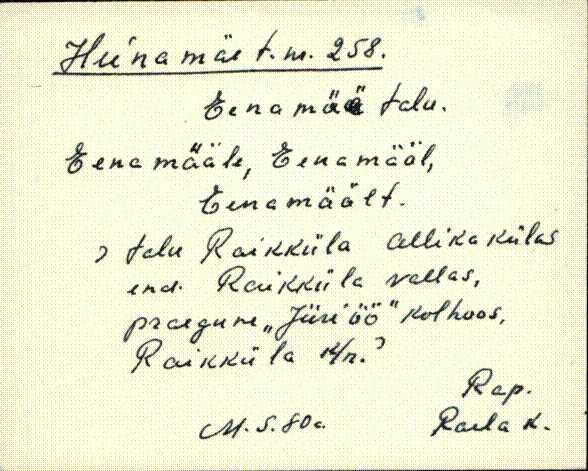 Heinamäe t. nr. 258.
Eenamää talu.
Eenamääle, Eenamääl,
Eenamäält.
> talu Raikküla Allikakülas
end. Raikküla vallas,
praegune „Jüriöö" kolhoos,
Raikküla k/n.>
Rap.
M. S. 80a. Raela K.